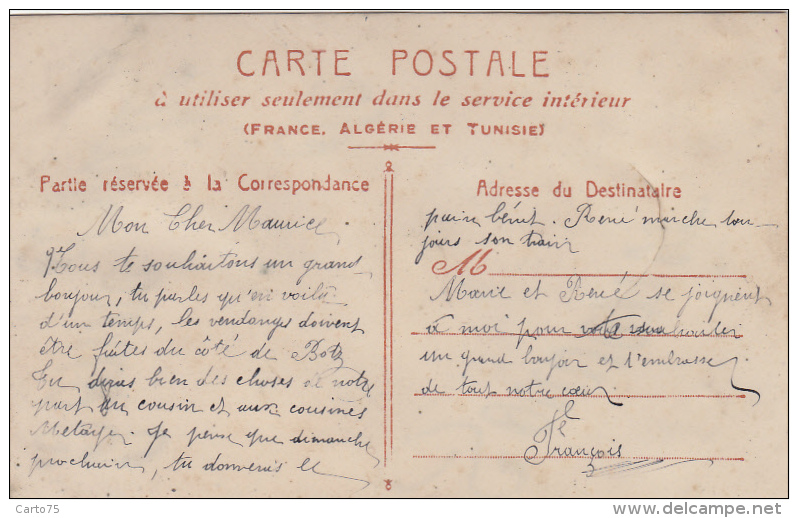 CARTE POSTALE
à utiliser seulement dans le service intérieur
(FRANCE, ALGÉRIE ET TUNISIE)
Partie réservée à la Correspondance
Mon Cher Maurice
Nous te souhaitons un grand
boujour, tu parles qu'en voilà
d'un temps, les vendanges doivent
être faites du côté de Botz
Tu diras bien des choses à notre
part au cousin et aux cousines
Metayer. Je pense que dimanche
prochain, tu donneras le
Adresse du Destinataire
pain bénit. René marche tou-
jours son train
M
Marie et René se joignent
à moi pour souhaiter
un grand boujoir et t'embrasse
de tout notre cœur
Tel
François
Carto75
http://www.delcampe.net